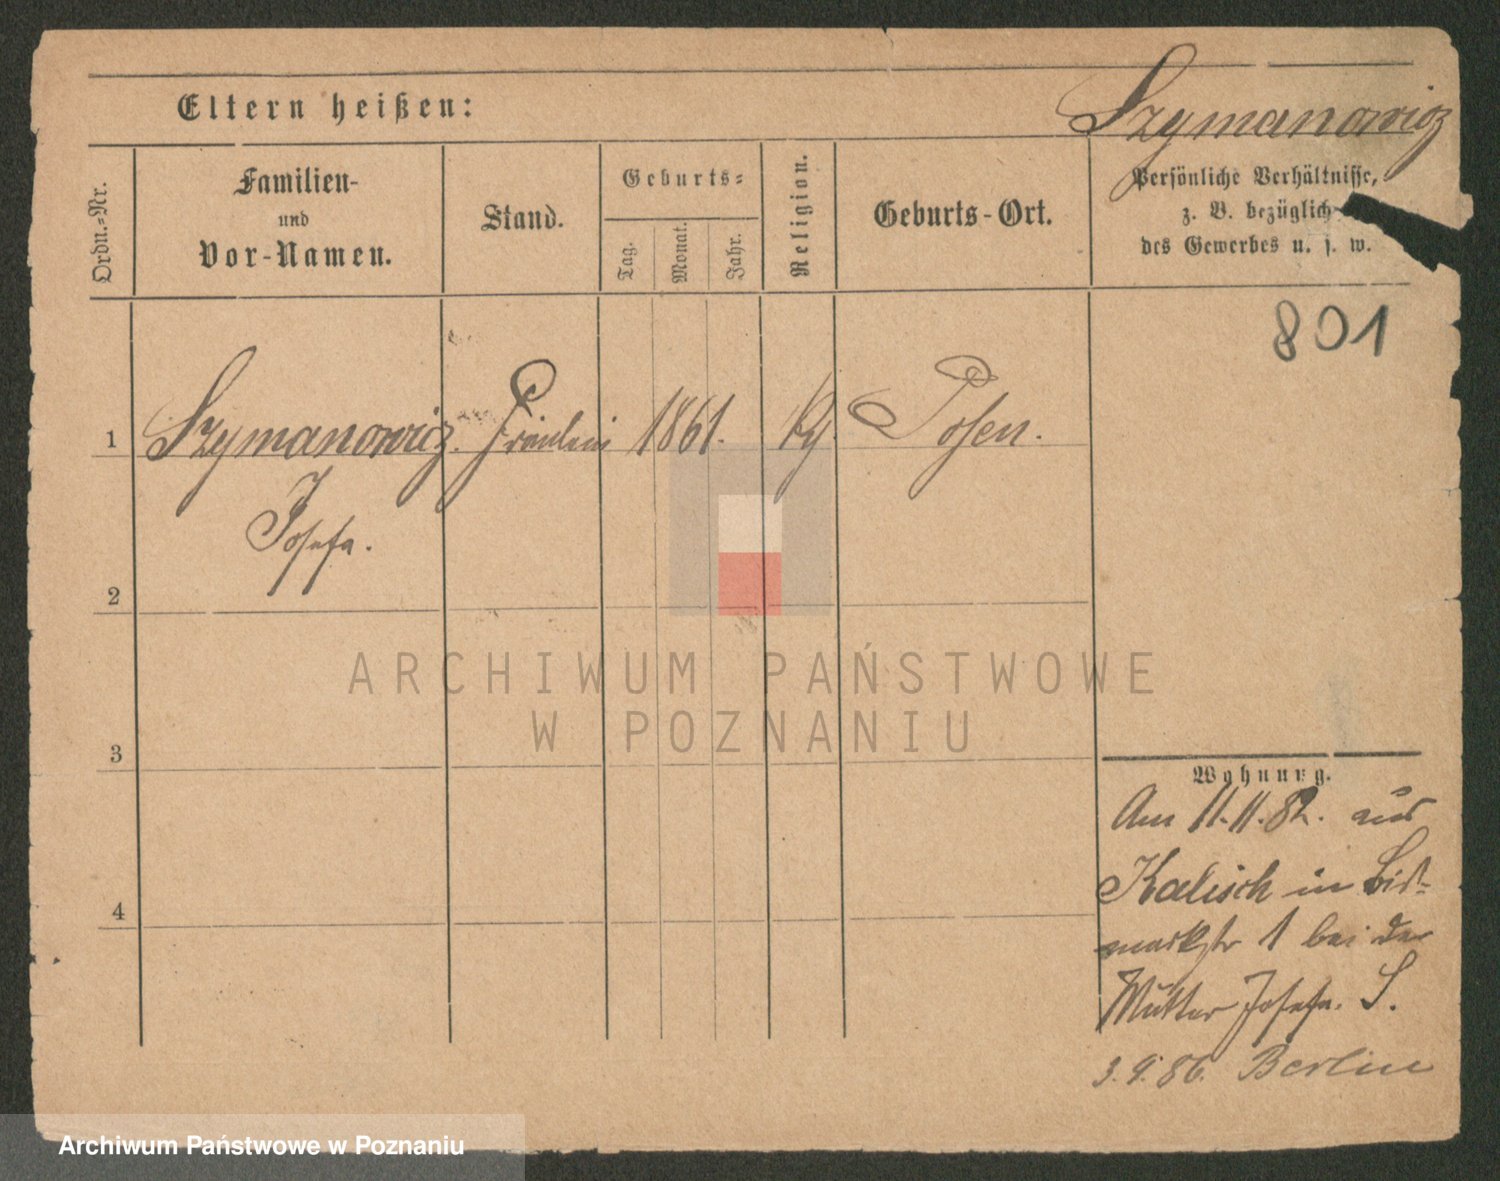 Szymanowicz
Eltern heißen:
Ordn.-Nr.
Familien-
und
Vor-Namen.
Stand.
Geburts-
Tag.
Monat.
Jahr.
Religion.
Geburts-Ort.
Persönliche Verhältnisse,
z. B. bezüglich
des Gewerbes u. s. w.
801
1
Szymanowicz. Fräulein 1861. Posen.
Josefa.
2
3
4
ARCHIWUM PAŃSTWOWE
W POZNANIU
Wohnung.
Am 11.11.82. aus
Kalisch in Bis-
markstr 1 bei der
Mutter Josefa. S.
3.9.86. Berlin
Archiwum Państwowe w Poznaniu